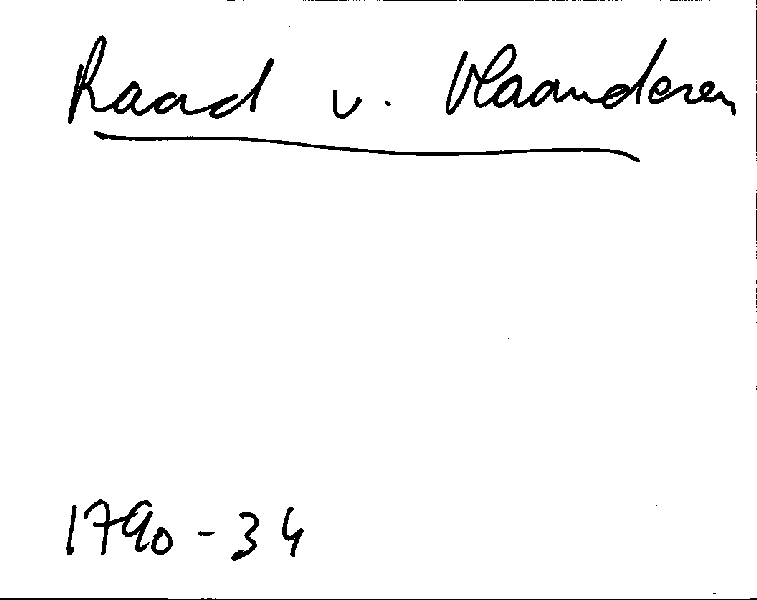 Raad v. Vlaanderen
1790-34